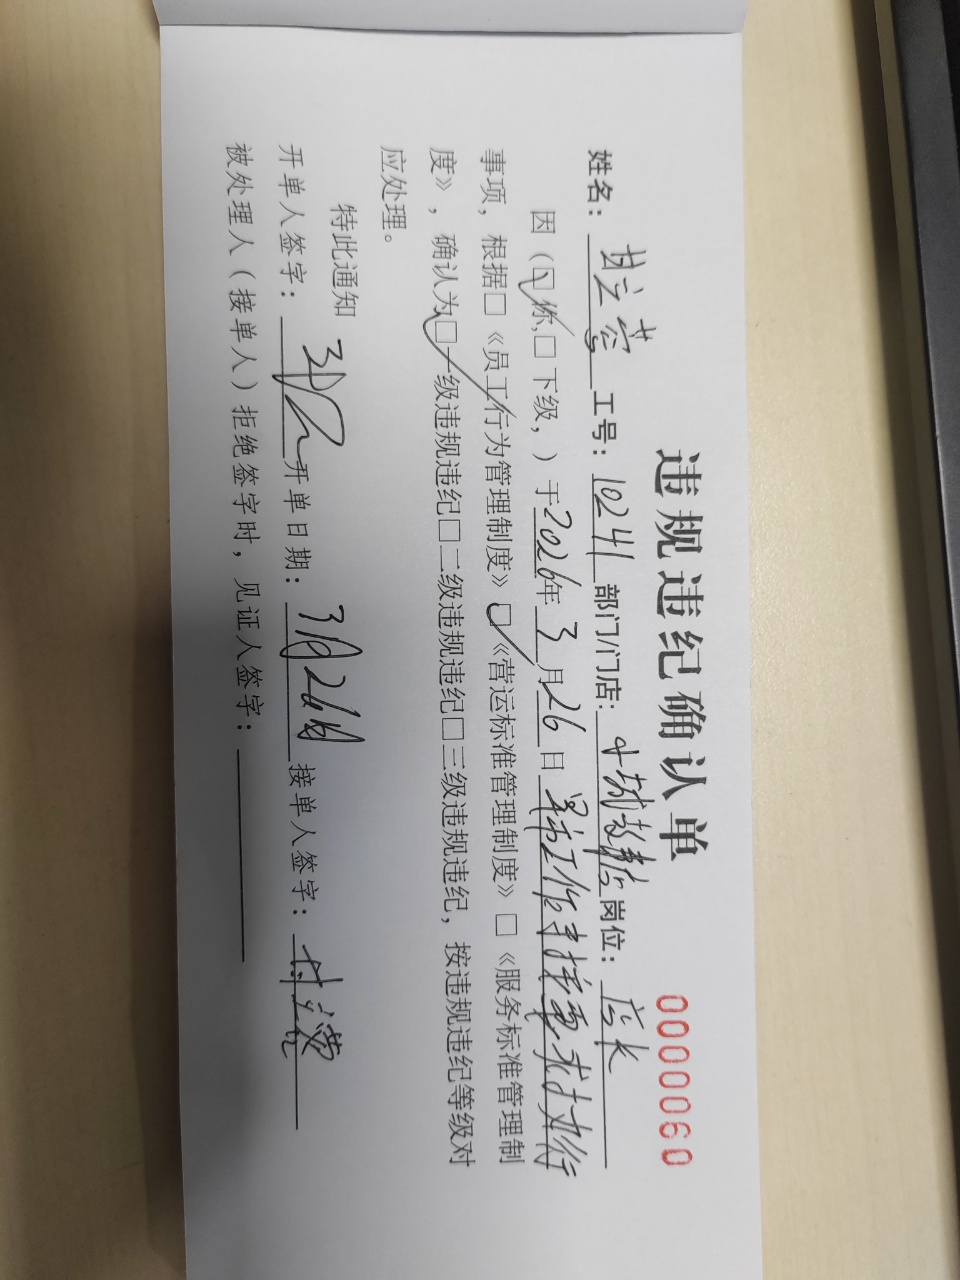 违规违纪确认单
0000060
姓名： 工号：10241 部门/门店： 岗位：店长
因（☑你,□下级，）于2026年3月26日 工作未按要求执行
事项，根据□《员工行为管理制度》☑《营运标准管理制度》□《服务标准管理制
度》，确认为☑一级违规违纪□二级违规违纪□三级违规违纪，按违规违纪等级对
应处理。
特此通知
开单人签字： 开单日期：3月26日 接单人签字：
被处理人（接单人）拒绝签字时，见证人签字：